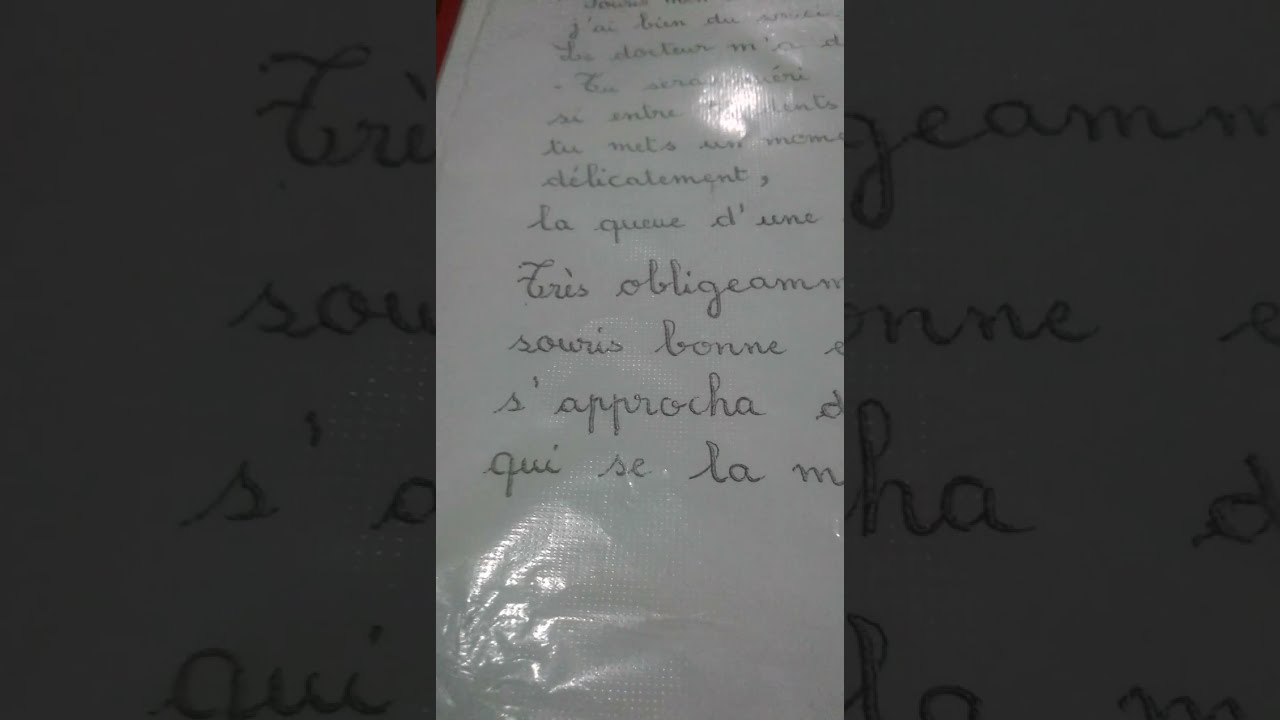 j'ai bien du souci.
Le docteur m'a d
- Tu seras guéri
si entre dents
tu mets un mome
délicatement,
la queue d'une
Très obligeamm
souris bonne e
s'approcha d
qui se la m